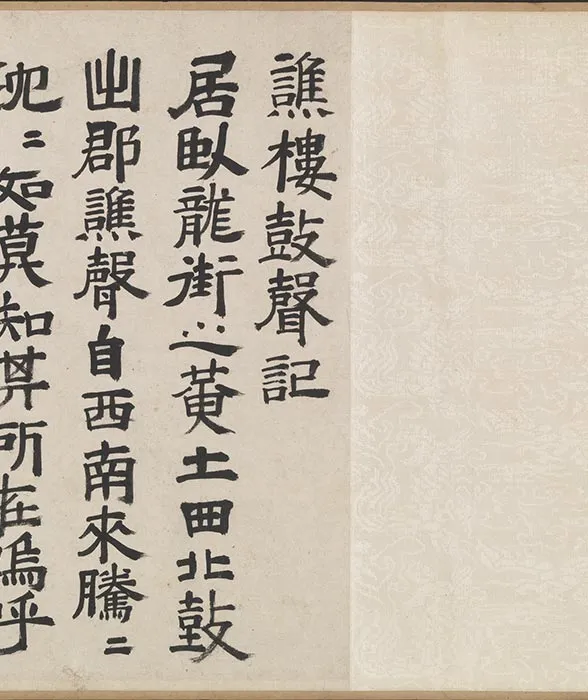 譙樓鼓聲記
居臥龍街之黃土曲北鼓
出郡譙聲自西南來騰〻
沈〻如莫知其所在嗚呼